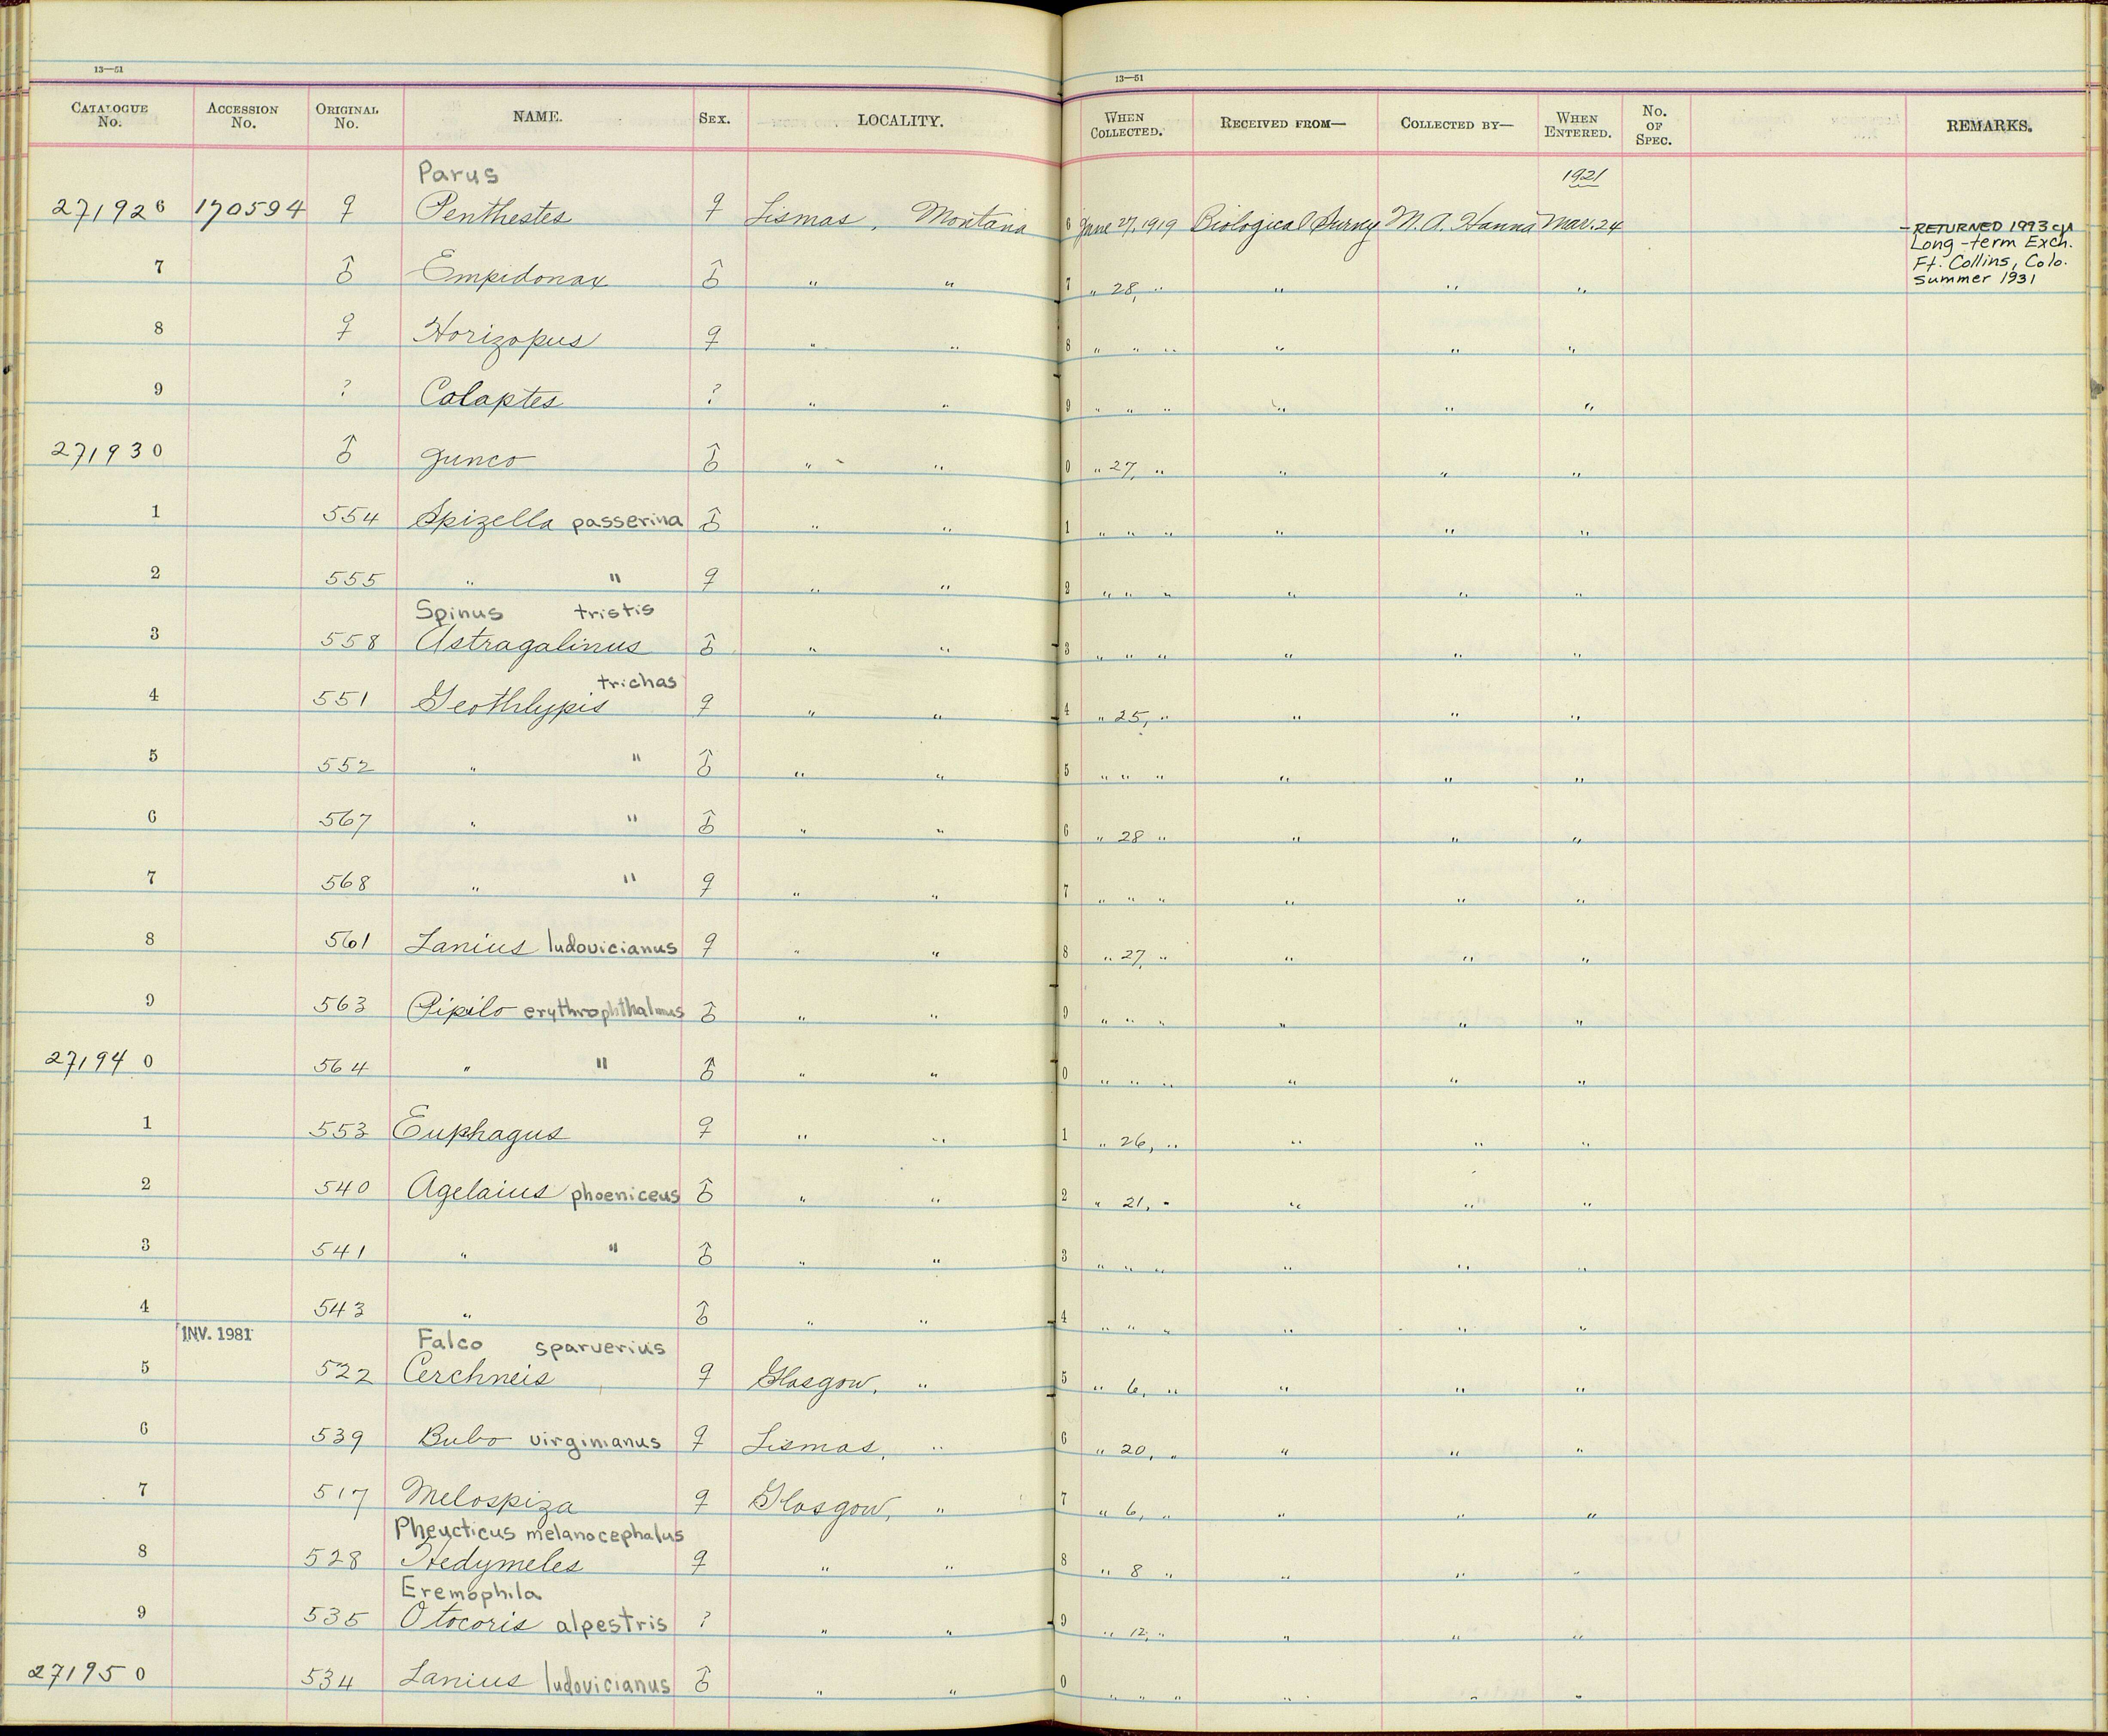 13—51
13—51
CATALOGUE No. ACCESSION No. ORIGINAL No. NAME. SEX. LOCALITY. WHEN COLLECTED. RECEIVED FROM— COLLECTED BY— WHEN ENTERED. No. OF SPEC. REMARKS.
Parus 1921
271926 170594 ♀ Penthestes ♀ Lismas, Montana 6 June 27, 1919 Biological Survey M. A. Hanna Mar. 24 – RETURNED 1993
Long-term Exch.
Ft. Collins, Colo.
Summer 1931
7 ♂ Empidonax ♂ " " 7 " 28, " " " "
8 ♀ Horizopus ♀ " " 8 " " " " " "
9 ? Colaptes ? " " 9 " " " " " "
271930 ♂ Junco ♂ " " 0 " 27, " " " "
1 554 Spizella passerina ♂ " " 1 " " " " " "
2 555 " " ♀ " " 2 " " " " " "
Spinus tristis
3 558 Astragalinus ♂ " " 3 " " " " " "
trichas
4 551 Geothlypis ♀ " " 4 " 25, " " " "
5 552 " " ♂ " " 5 " " " " " "
6 567 " " ♂ " " 6 " 28 " " " "
7 568 " " ♀ " " 7 " " " " " "
8 561 Lanius ludovicianus ♀ " " 8 " 27, " " " "
9 563 Pipilo erythrophthalmus ♂ " " 9 " " " " " "
271940 564 " " ♂ " " 0 " " " " " "
1 553 Euphagus ♀ " " 1 " 26, " " " "
2 540 Agelaius phoeniceus ♂ " " 2 " 21, " " " "
3 541 " " ♂ " " 3 " " " " " "
4 543 " ♂ " " 4 " " " " " "
INV. 1981 Falco sparverius
5 522 Cerchneis ♀ Glasgow, " 5 " 6, " " " "
6 539 Bubo virginianus ♀ Lismas, " 6 " 20, " " " "
7 517 Melospiza ♀ Glasgow, " 7 " 6, " " " "
Pheucticus melanocephalus
8 528 Hedymeles ♀ " " 8 " 8 " " " "
Eremophila
9 535 Otocoris alpestris ? " " 9 " 12, " " " "
271950 534 Lanius ludovicianus ♂ " " 0 " " " " " "